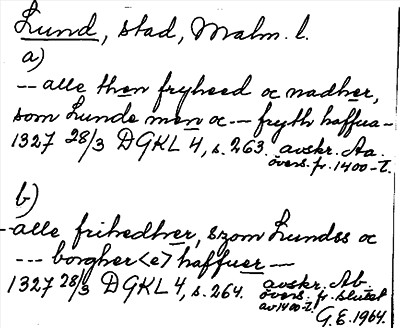 Lund, stad, Malm. l.
a)
-- alle then fryheed oc nadher,
som Lunde men oc -- fryth haffua -
1327 28/3 DGKL 4, s. 263. avskr. Aa.
övers. fr. 1400-t.
b)
- alle frihedher, szom Lundss oc
--- borgher<e> haffuer --
1327 28/3 DGKL 4, s. 264. avskr. Ab.
övers. fr. slutet
av 1400-t.
G.E. 1964.